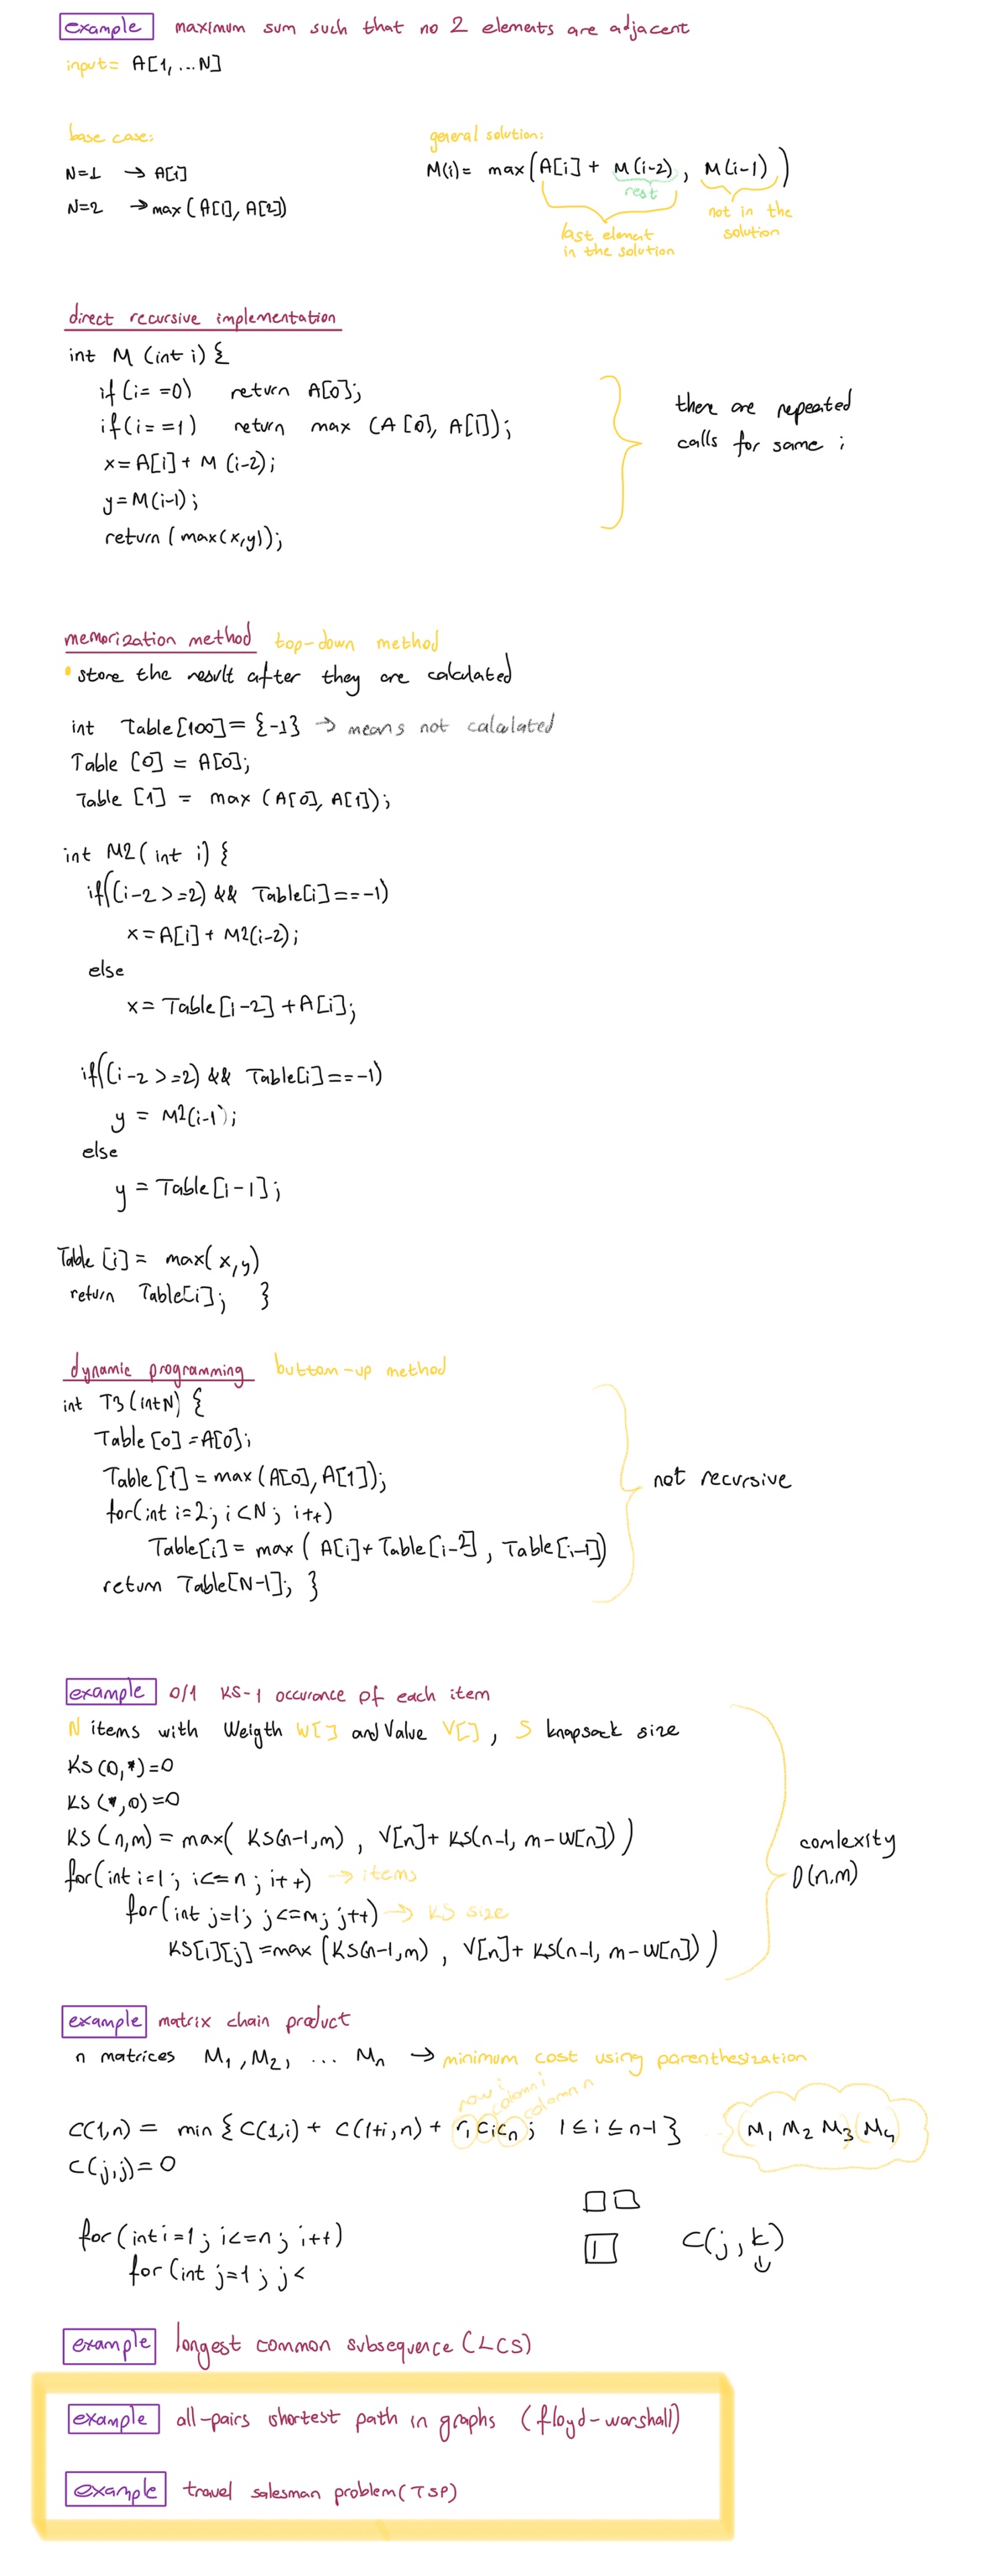 example maximum sum such that no 2 elements are adjacent
input= A[1, ...N]
base case:
N=1 → A[i]
N=2 → max (A[1], A[2])
general solution:
M(i) = max(A[i] + M(i-2), M(i-1))
rest
last element
in the solution
not in the
solution
direct recursive implementation
int M (int i) {
if(i==0) return A[0];
if(i==1) return max (A[0], A[1]);
x=A[i]+ M (i-2);
y=M(i-1);
return (max(x,y));
there are repeated
calls for same i
memorization method top-down method
• store the result after they are calculated
int Table[100]= {-1} → means not calculated
Table [0] = A[0];
Table [1] = max (A[0], A[1]);
int M2( int i) {
if((i-2>=2) && Table[i]==-1)
x=A[i]+ M2(i-2);
else
x= Table[i-2]+A[i];
if((i-2>=2) && Table[i]==-1)
y = M2(i-1);
else
y = Table[i-1];
Table [i] = max( x,y)
return Table[i]; }
dynamic programming buttom-up method
int T3 (int N) {
Table [0] =A[0];
Table [1] = max (A[0], A[1]);
for(int i=2; i<N; i++)
Table[i] = max ( A[i]+ Table[i-2], Table[i-1])
return Table[N-1]; }
not recursive
example 0/1 KS-1 occurance of each item
N items with Weigth W[] and Value V[], S knapsack size
KS (0,*)=0
KS (*,0)=0
KS (n,m) = max( KS(n-1,m) , V[n]+ KS(n-1, m-W[n]))
for(int i=1; i<=n; i++) → items
for(int j=1; j<=m; j++) → KS size
KS[i][j] =max (KS(n-1,m) , V[n]+ KS(n-1, m-W[n]))
comlexity
O(n.m)
example matrix chain product
n matrices M1, M2, ... Mn → minimum cost using parenthesization
row i
column i
column n
C(1,n) = min {C(1,i) + C(1+i,n) + r1cicn; 1≤i≤n-1}
(M1 M2 M3)(M4)
C(j,j)=0
for(int i=1; i<=n; i++)
for (int j=1; j<
C(j,k)
example longest common subsequence (LCS)
example all-pairs shortest path in graphs (floyd-warshall)
example travel salesman problem(TSP)